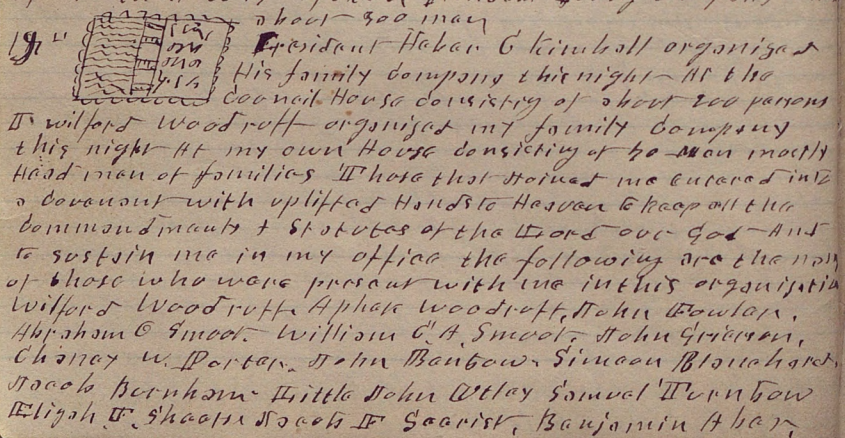 about 300 men
19th President Heber C Kimball organized
His family Company this night At the
Council House consisting of about 200 persons
I wilford Woodruff organized my family Company
this night At my own House Consisting of 40 men mostly
Head men of families Those that Joined me entered into
a covenant with uplifted Hands to Heaven to keep all the
commandments & Statutes of the Lord our God And
to sustain me in my office the following are the names
of those who were present with me in this organization
Wilford Woodruff, Aphek Woodruff, John Fowler,
Abraham O Smoot. William C. A. Smoot. John Grierson,
Chancy W. Porter. John Benbow. Simeon Blanchard.
Jacob Burnham. Little John Utley Samuel Turnbow
Elijah F. Sheets Jacob F Secrist, Benjamin Aber.